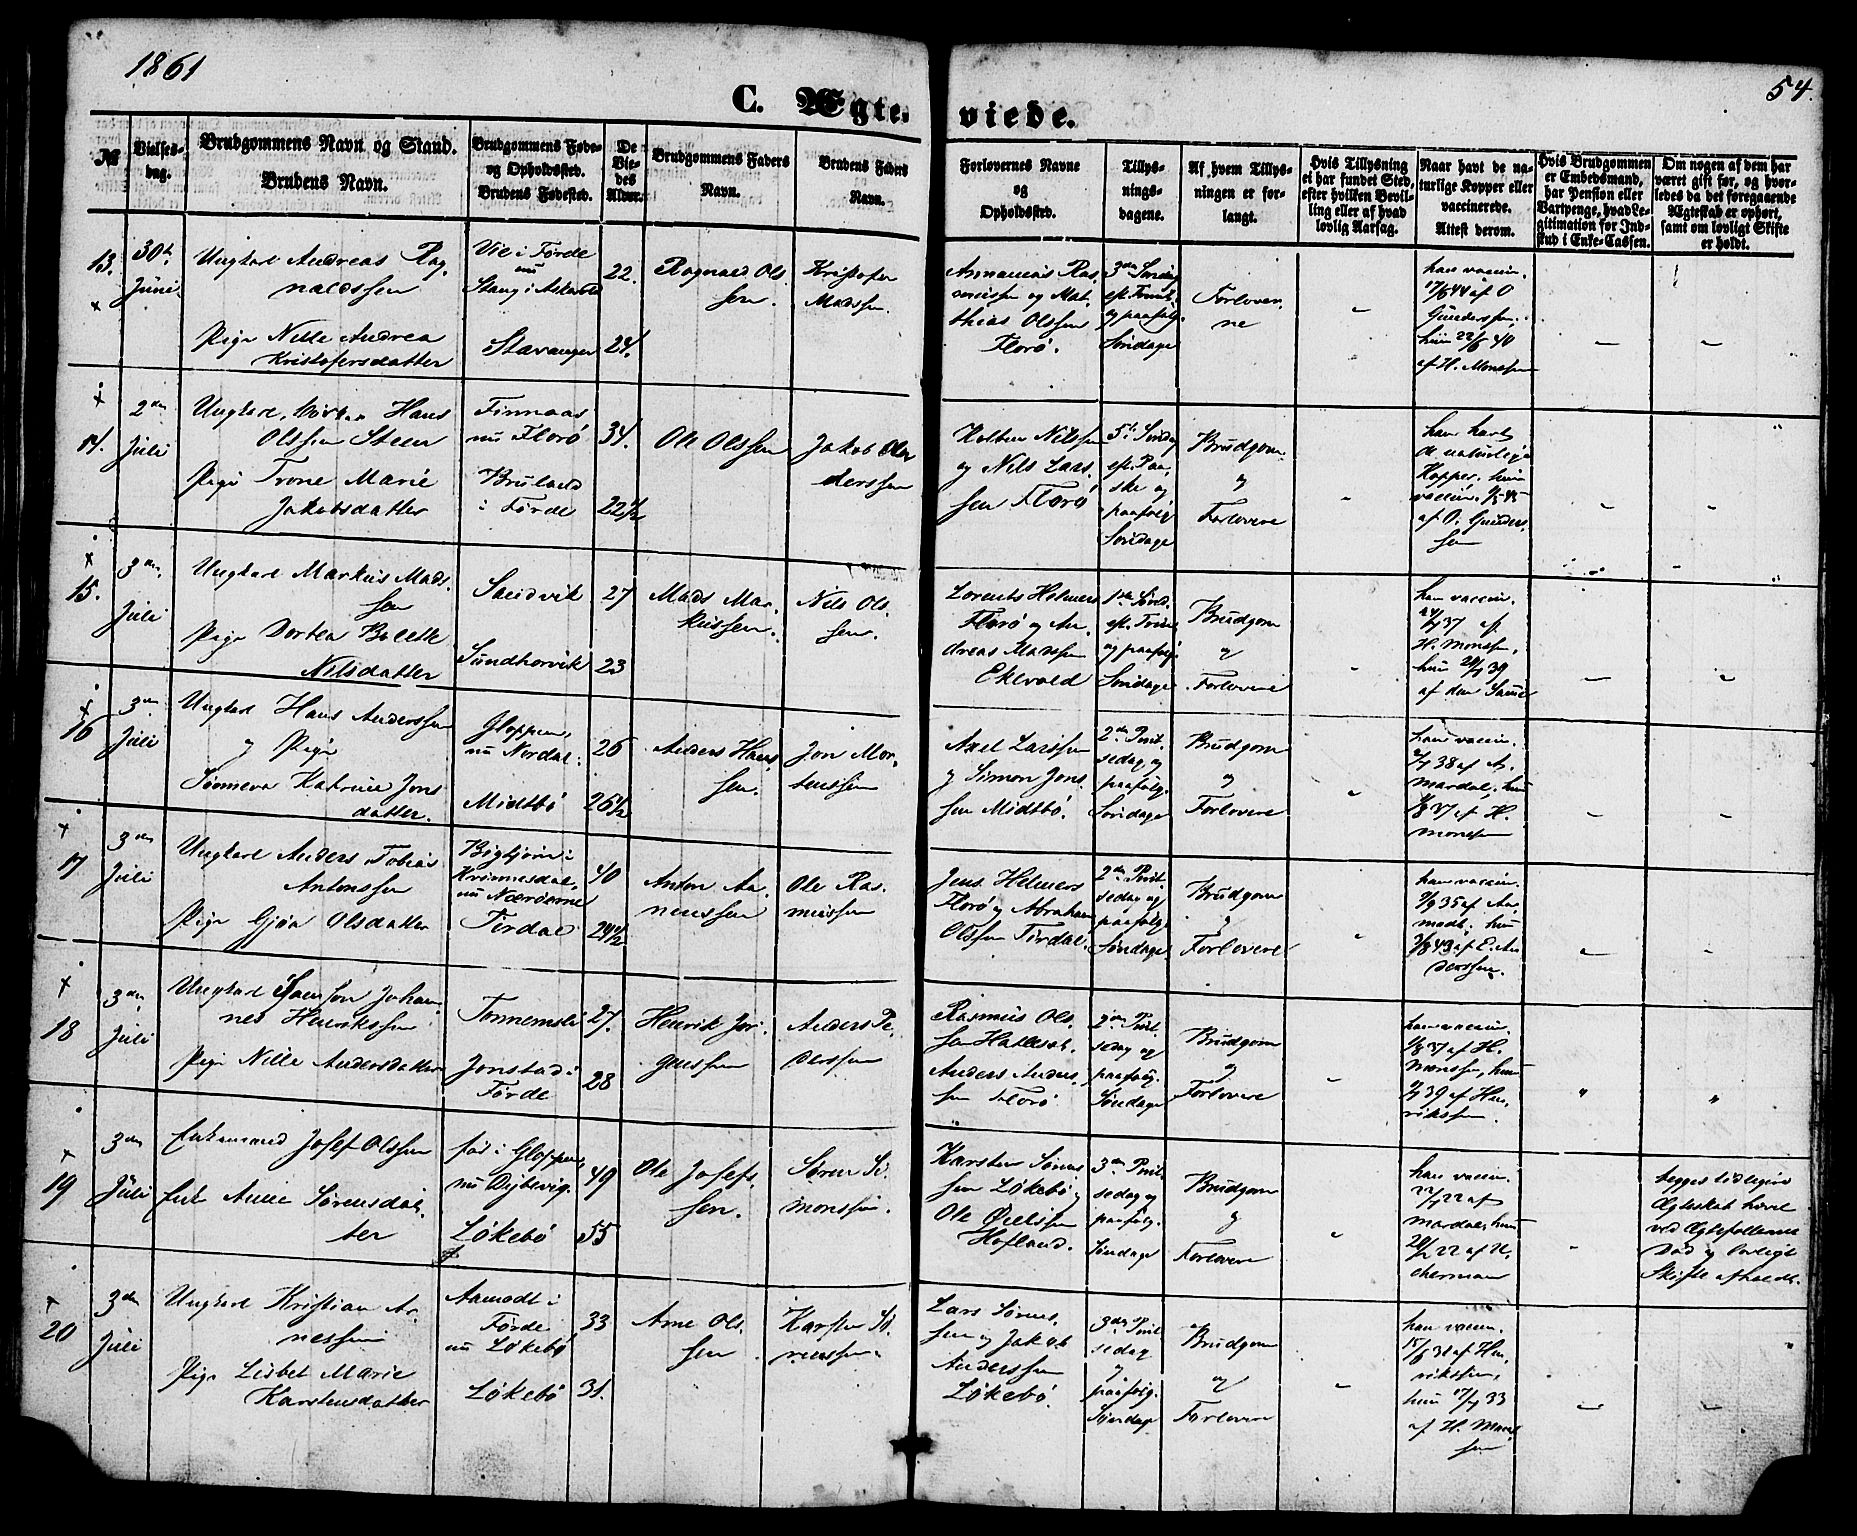 1861
54.
C. Ægte-
viede.
№
Vielses-
dag.
Brudgommens Navn og Stand.
Brudens Navn.
Brudgommens Føde-
og Opholdssted.
Brudens Fødested.
De
Vie-
des
Alder.
Brudgommens Faders
Navn.
Brudens Faders
Navn.
Forlovernes Navne
og
Opholdssted.
Tillys-
nings-
dagene.
Af hvem Tillys-
ningen er for-
langt.
Hvis Tillysning
ei har fundet Sted,
efter hvilken Bevil-
ling eller af hvad
lovlig Aarsag.
Naar havt de na-
turlige Kopper eller
vaccinerede.
Attest derom.
Hvis Brudgommen
er Embedsmand,
har Pension eller
Vartpenge, hvad Le-
gitimation for Ind-
skud i Enke-Cassen.
Om nogen af dem har
været gift før, og hvor-
ledes da det foregaaende
Ægteskab er ophørt,
samt om lovligt Skifte
er holdt.
13.
30te
Juni
Ungkarl Andreas Rag-
naldssen
Pige Nille Andrea
Kristofersdatter
Vie i Førde
nu
Stang i Askvold
Stavanger
22.
24.
Ragnald Ols
sen.
Kristofer
Madssen.
Ananias Ras
mussen og Mat
thias Olssen
Florø.
3die Søndag
og paafølg.
Søndage
Forlover
ne
han vaccin.
17/6 44 af O
Gunderssen.
hun 22/6 40
af H. Monssen
14.
2den
Juli
Ungkarl, Hans
Olssen Steen
Pige Trone Marie
Jakobsdatter
Finnaas
nu Florø
Bruland
i Førde
34.
22½
Ole Olssen
Jakob
derssen
Nilssen
og Nils Lars
sen Florø
5te Søndag
eft. Paa
ske og
paafølg
Søndage
Brudgom
og
Forlovere
han havt
de naturlige
Kopper. hun
vaccin.
af O. Gunders
sen
15.
3den
Juli
Ungkarl Markus Mads
sen
Pige Dortea Bolette
Nilsdatter
Sandvik
Sundhorvik
27
23
Mads Mar
kussen.
Nils Ols
sen.
Lorents Helmers
Florø og An
dreas Madssen
Ekevold
1ste Sønd.
eft. Trini
og paafølg
Søndage
Brudgom
og
Forlovere
han vaccin.
37 af
H. Monssen,
hun 39
af den Samme
16
3den
Juli
Ungkarl Hans Anderssen
og Pige
Sønneva Katrine Jons
datter.
Gloppen,
nu Nordal
Midtbø
26
26½
Anders Hans
sen.
Jon Mor
tenssen
Axel Larssen
og Simon Jons
sen Midtbø.
2den Pint
sedag og
paafølg.
Søndage
Brudgom
og
Forlovere
han vaccin.
38 af A.
Mardal, hun
37 af H.
Monssen
17
3den
Juli
Ungkarl Anders Tobias
Antonssen
Pige Gjøa Olsdatter
Kvinnesdal,
nu Nærøerne
Tirdal
40
24½
Anton Aa
nenssen
Ole Ras
mussen
Jens Helmers
Florø og Abraham
Olssen Tirdal.
2den Pint
sedag og
paafølg
Søndage
Brudgom
og
Forlovere
han vaccin.
35 af Aa
modt, hun
43 af E. An
derssen.
18
3den
Juli
Ungkarl Johan-
nes Henrikssen
Pige Nille Andersdatter
Tonnemsli
Jonstad i
Førde
27.
28
Henrik Jør
genssen
Anders Pe
derssen
Rasmus Ols
sen
Anders Anders
sen Florø
2den Pint
sedag og
paafølg.
Søndage
Brudgom
og
Forlovere
han vaccin.
37 af H.
Monssen, hun
39 af Hen
rikssen.
19
3den
Juli
Enkemand Josef Olssen
Enke Anne Sørensdat
ter
fød i Gloppen,
nu
Løkebø
49
55
Ole Josefs
sen.
Søren Si
monssen.
Karsten Søren
sen Løkebø og
Ole
Hofland.
3die Pint
sedag og
paafølg.
Søndage
Brudgom
og
Forlovere
han vaccin.
22 af
Mardal, hun
22 af
cherman
begges tidligere
Ægteskab hævet
ved Ægtefællernes
Død og lovligt
Skifte afholdt.
20
3den
Juli
Ungkarl Kristian Ar
nessen
Pige Lisbet Marie
Karstensdatter
Aamodt i
Førde
nu Løkebø
Løkebø
33
31.
Arne Ols
sen
Karsten Sø
renssen.
Lars Sørens
sen og Jakob
Anderssen
Løkebø.
3die Pint
sedag
og
paafølg.
Søndage
Brudgom
og
Forlovere
han vaccin.
af Hen
rikssen,
hun 33
af H. Mons
sen